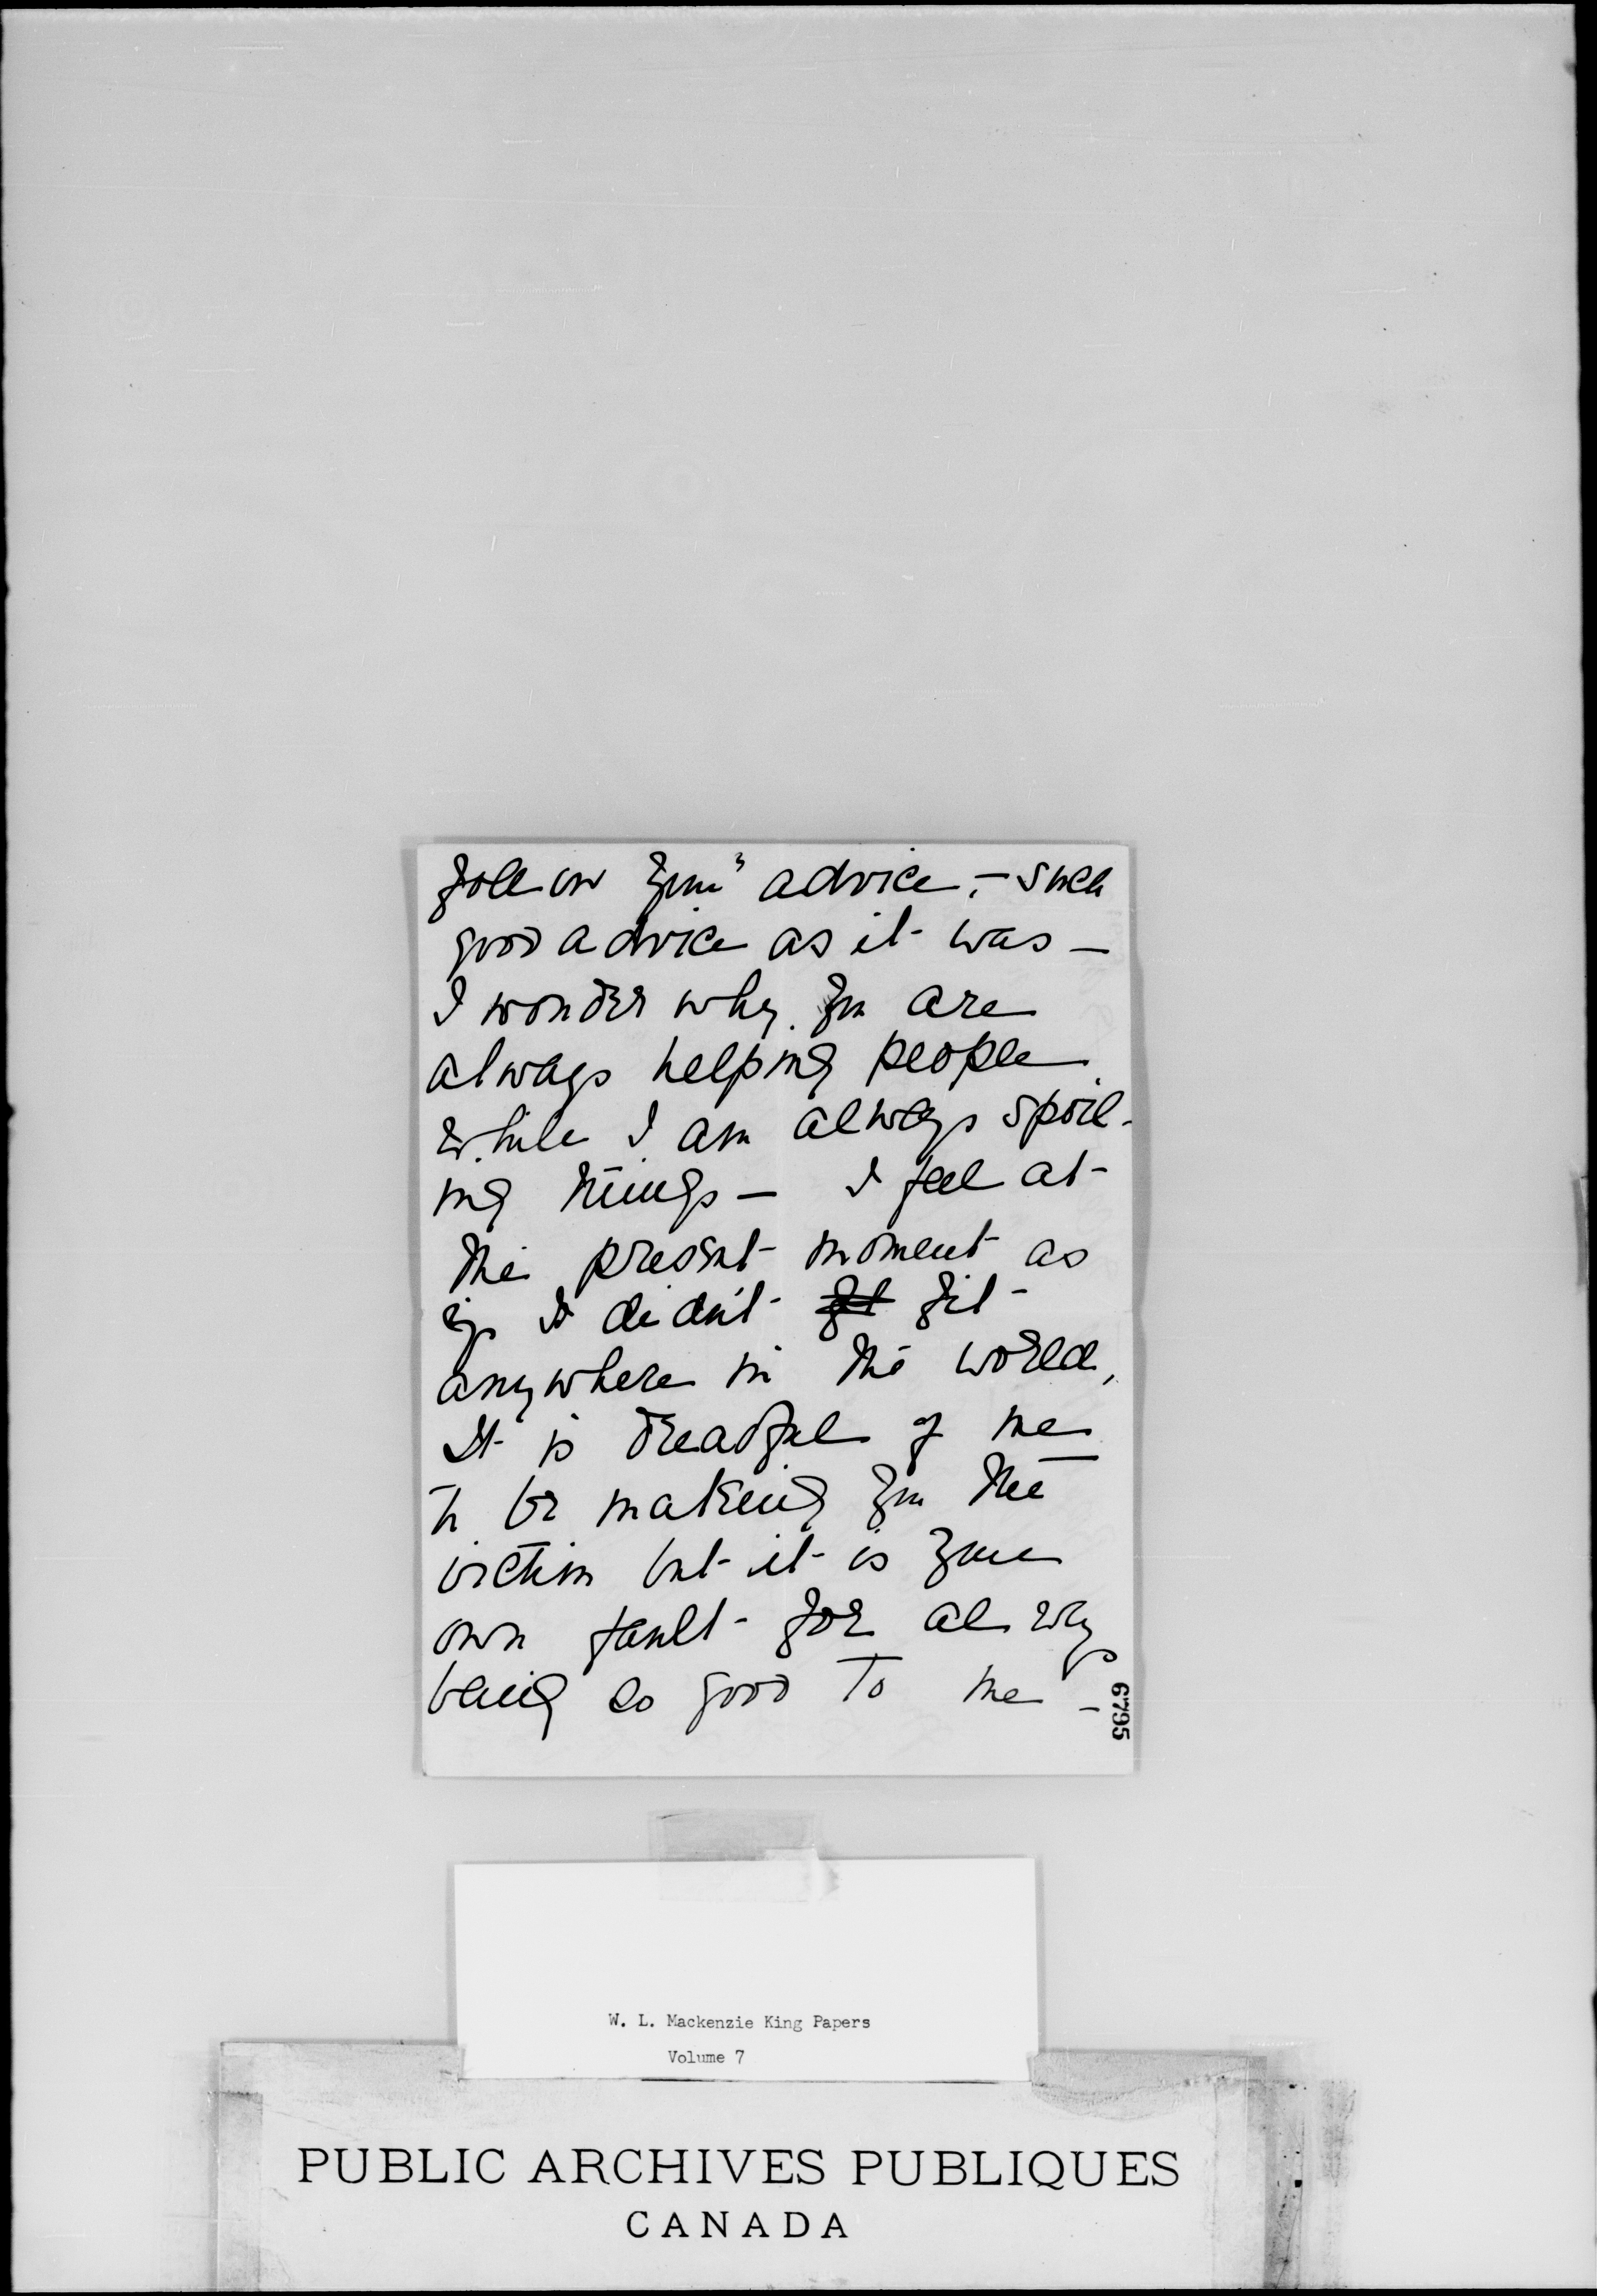 follow your advice, - such
good advice as it was -
I wonder why you are
always helping people
while I am always spoil-
ing things - I feel at
the present moment as
if I didn't fit
anywhere in the world,
It is dreadful of me
to be making you the
victim but it is your
own fault for always
being so good to me -
6795
W. L. Mackenzie King Papers
Volume 7
PUBLIC ARCHIVES PUBLIQUES
CANADA